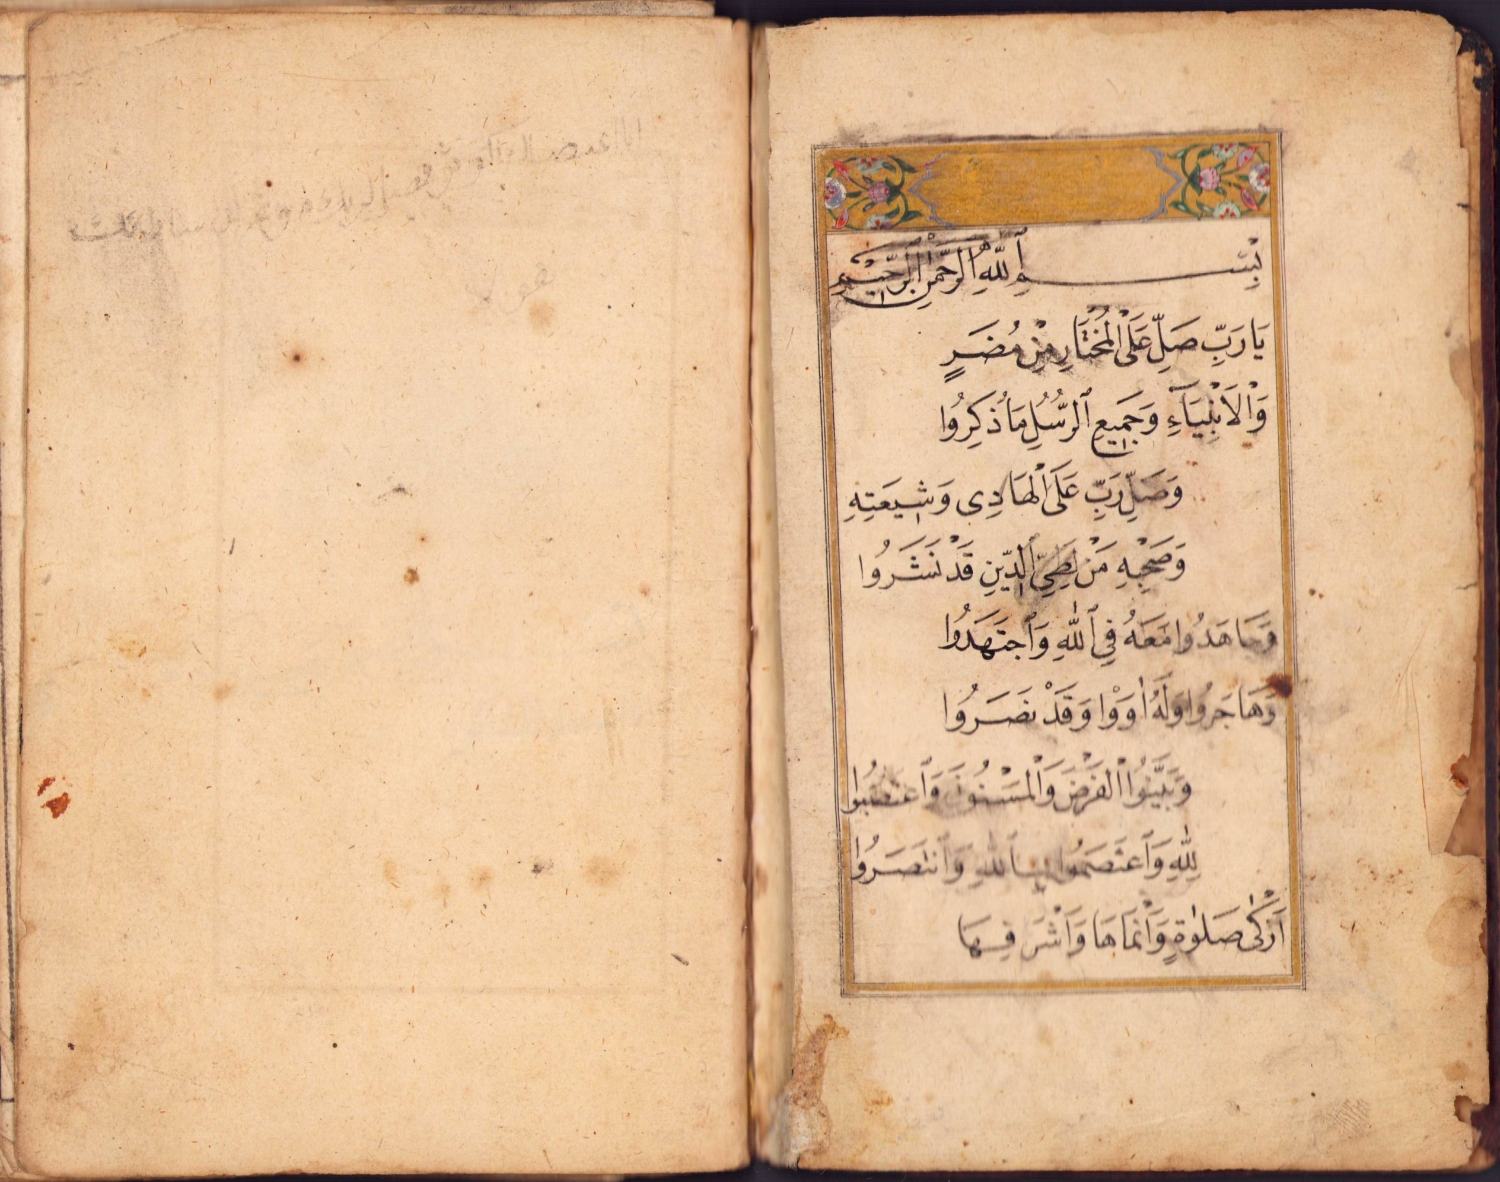 بِسْمِ ٱللّٰهِ الرَّحْمٰنِ الرَّحِيْمِ
يَا رَبِّ صَلِّ عَلَى الْمُخْتَارِ مِنْ مُضَرٍ
وَالْاَنْبِيَآءِ وَجَمِيعِ ٱلرُّسُلِ مَا ذُكِرُوا
وَصَلِّ رَبِّ عَلَى الْهَادِى وَشِيعَتِهِ
وَصَحْبِهِ مَنْ لِطَيِّ ٱلدِّينِ قَدْ نَشَرُوا
وَجَاهَدُوا مَعَهُ فِي ٱللّٰهِ وَٱجْتَهَدُوا
وَهَاجَرُوا وَلَهُ اٰوَوْا وَقَدْ نَصَرُوا
وَبَيَّنُوا الْفَرْضَ وَالْمَسْنُونَ وَٱعْتَصَبُوا
لِلّٰهِ وَٱعْتَصَمُوا بِٱللّٰهِ وَٱنْتَصَرُوا
اَزْكٰى صَلٰوةٍ وَاَنْمَاهَا وَاَشْرَفِهَا